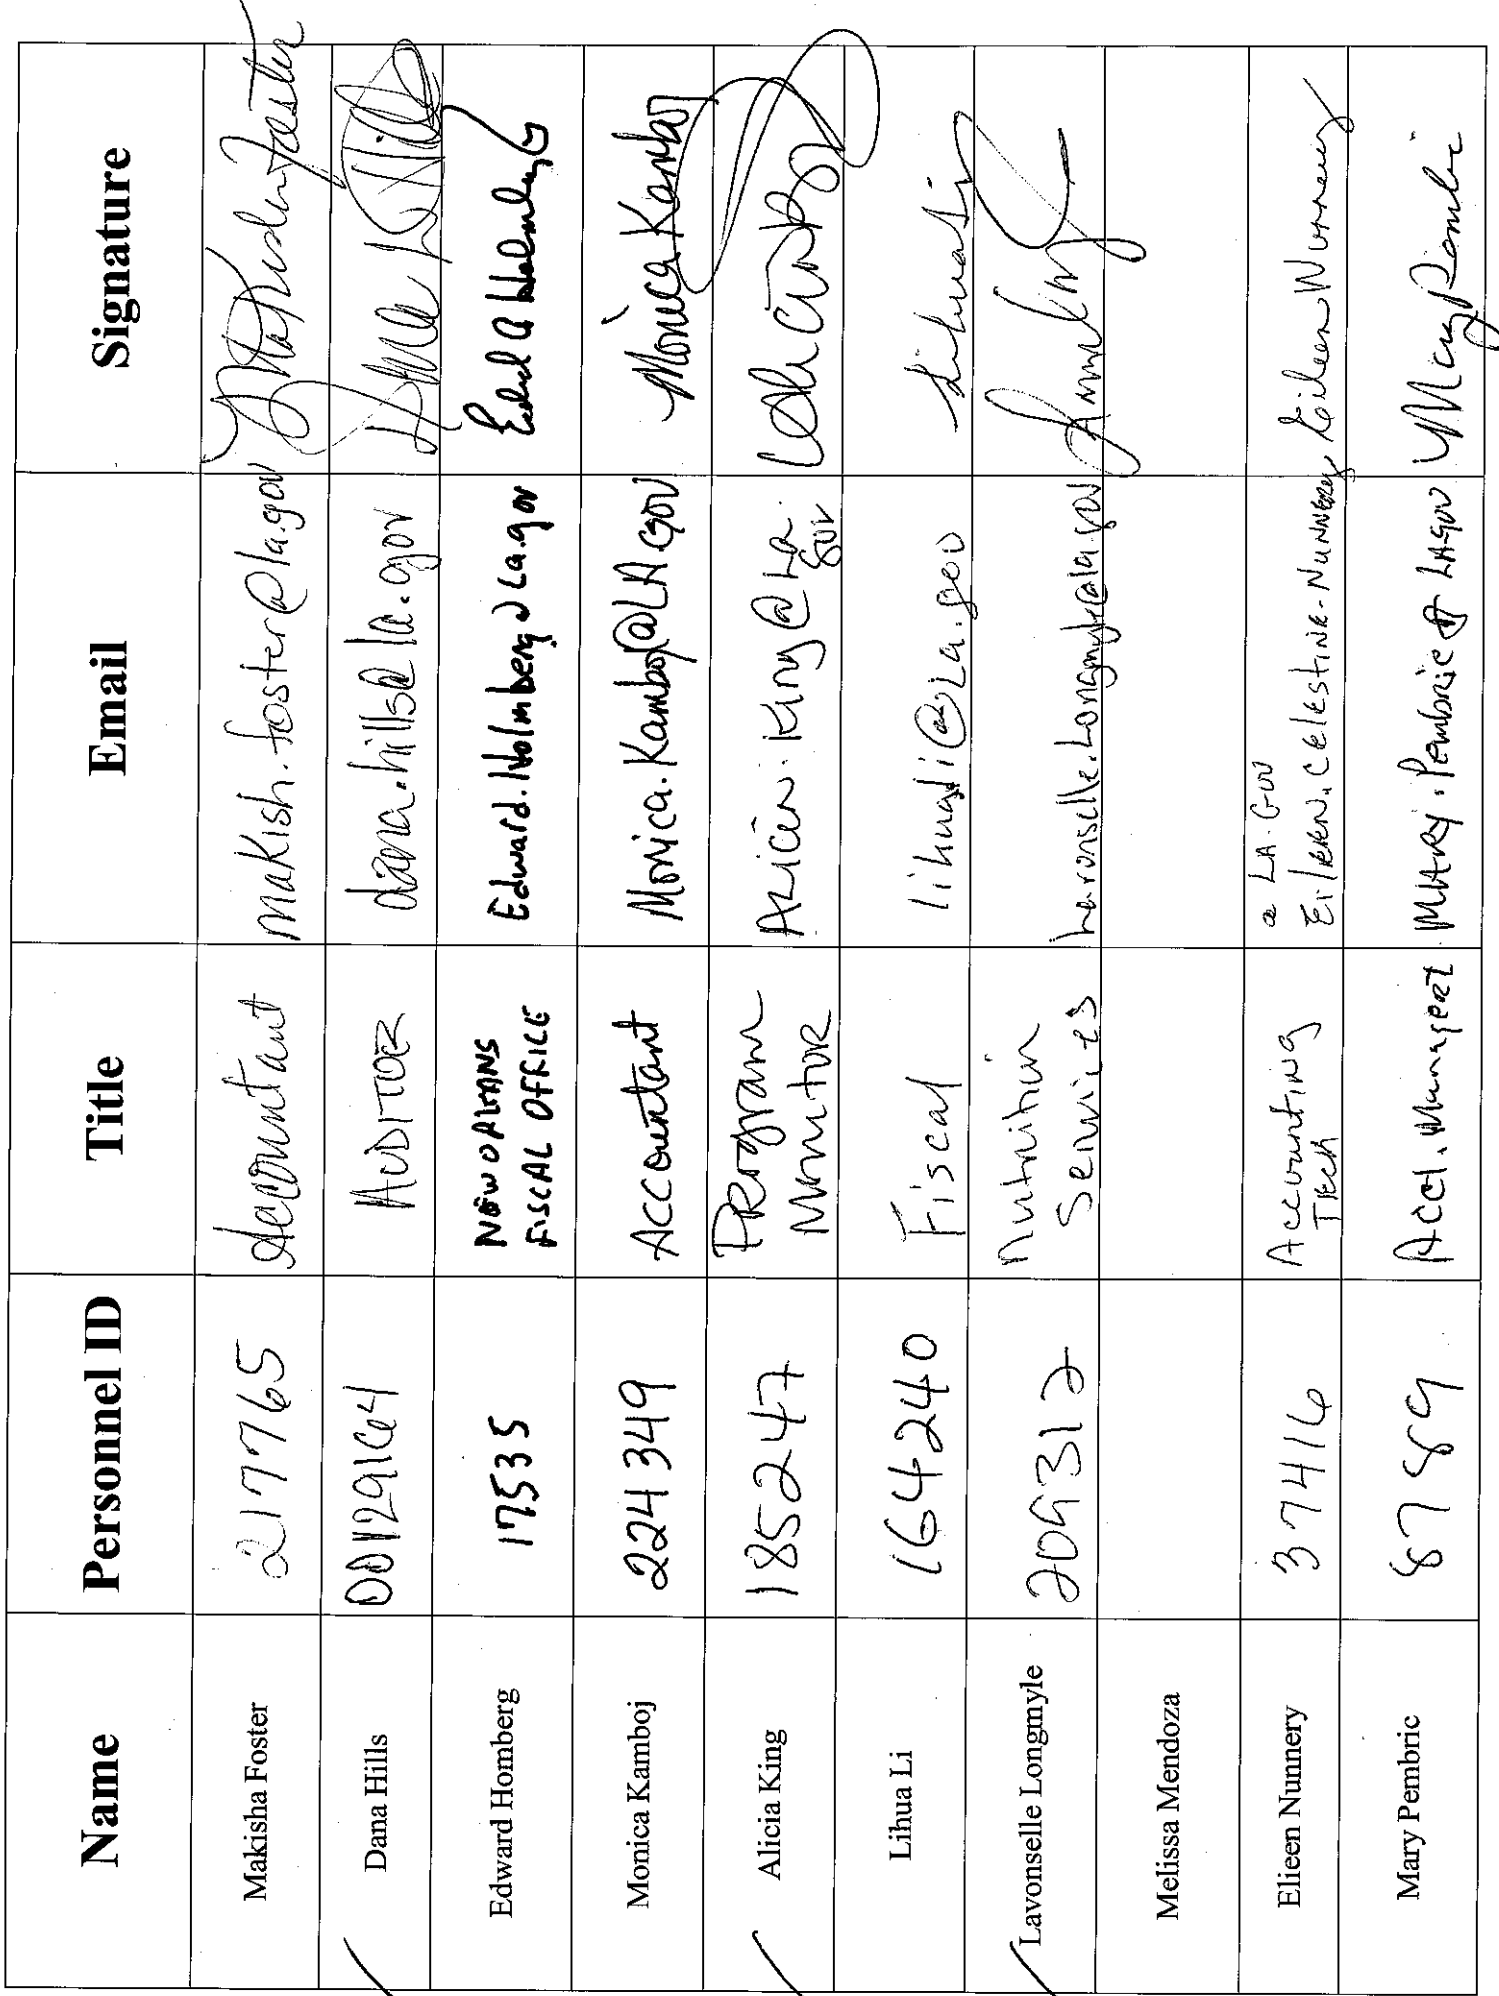 Name Personnel ID Title Email Signature
Makisha Foster 217765 Accountant makish.foster@la.gov
Dana Hills 00129164 AUDITOR dana.hills@la.gov Dana Hills
Edward Homberg 17535 NEW ORLEANS
FISCAL OFFICE Edward.Holmberg@La.gov
Monica Kamboj 224349 Accountant Monica.Kamboj@LA.gov Monica Kamboj
Alicia King 185247 Program
Monitor Alicia.King@La.
gov
Lihua Li 164240 Fiscal lihua.li@La.gov Lihua Li
Lavonselle Longmyle 209312 Nutrition
Services
Melissa Mendoza
Elieen Nunnery 37416 Accounting
Tech @ LA.GOV
Eileen.Celestine-Nunnery
Mary Pembric 8789 Acct. Manager2 MARY.Pembric @ LA.gov Mary Pembric